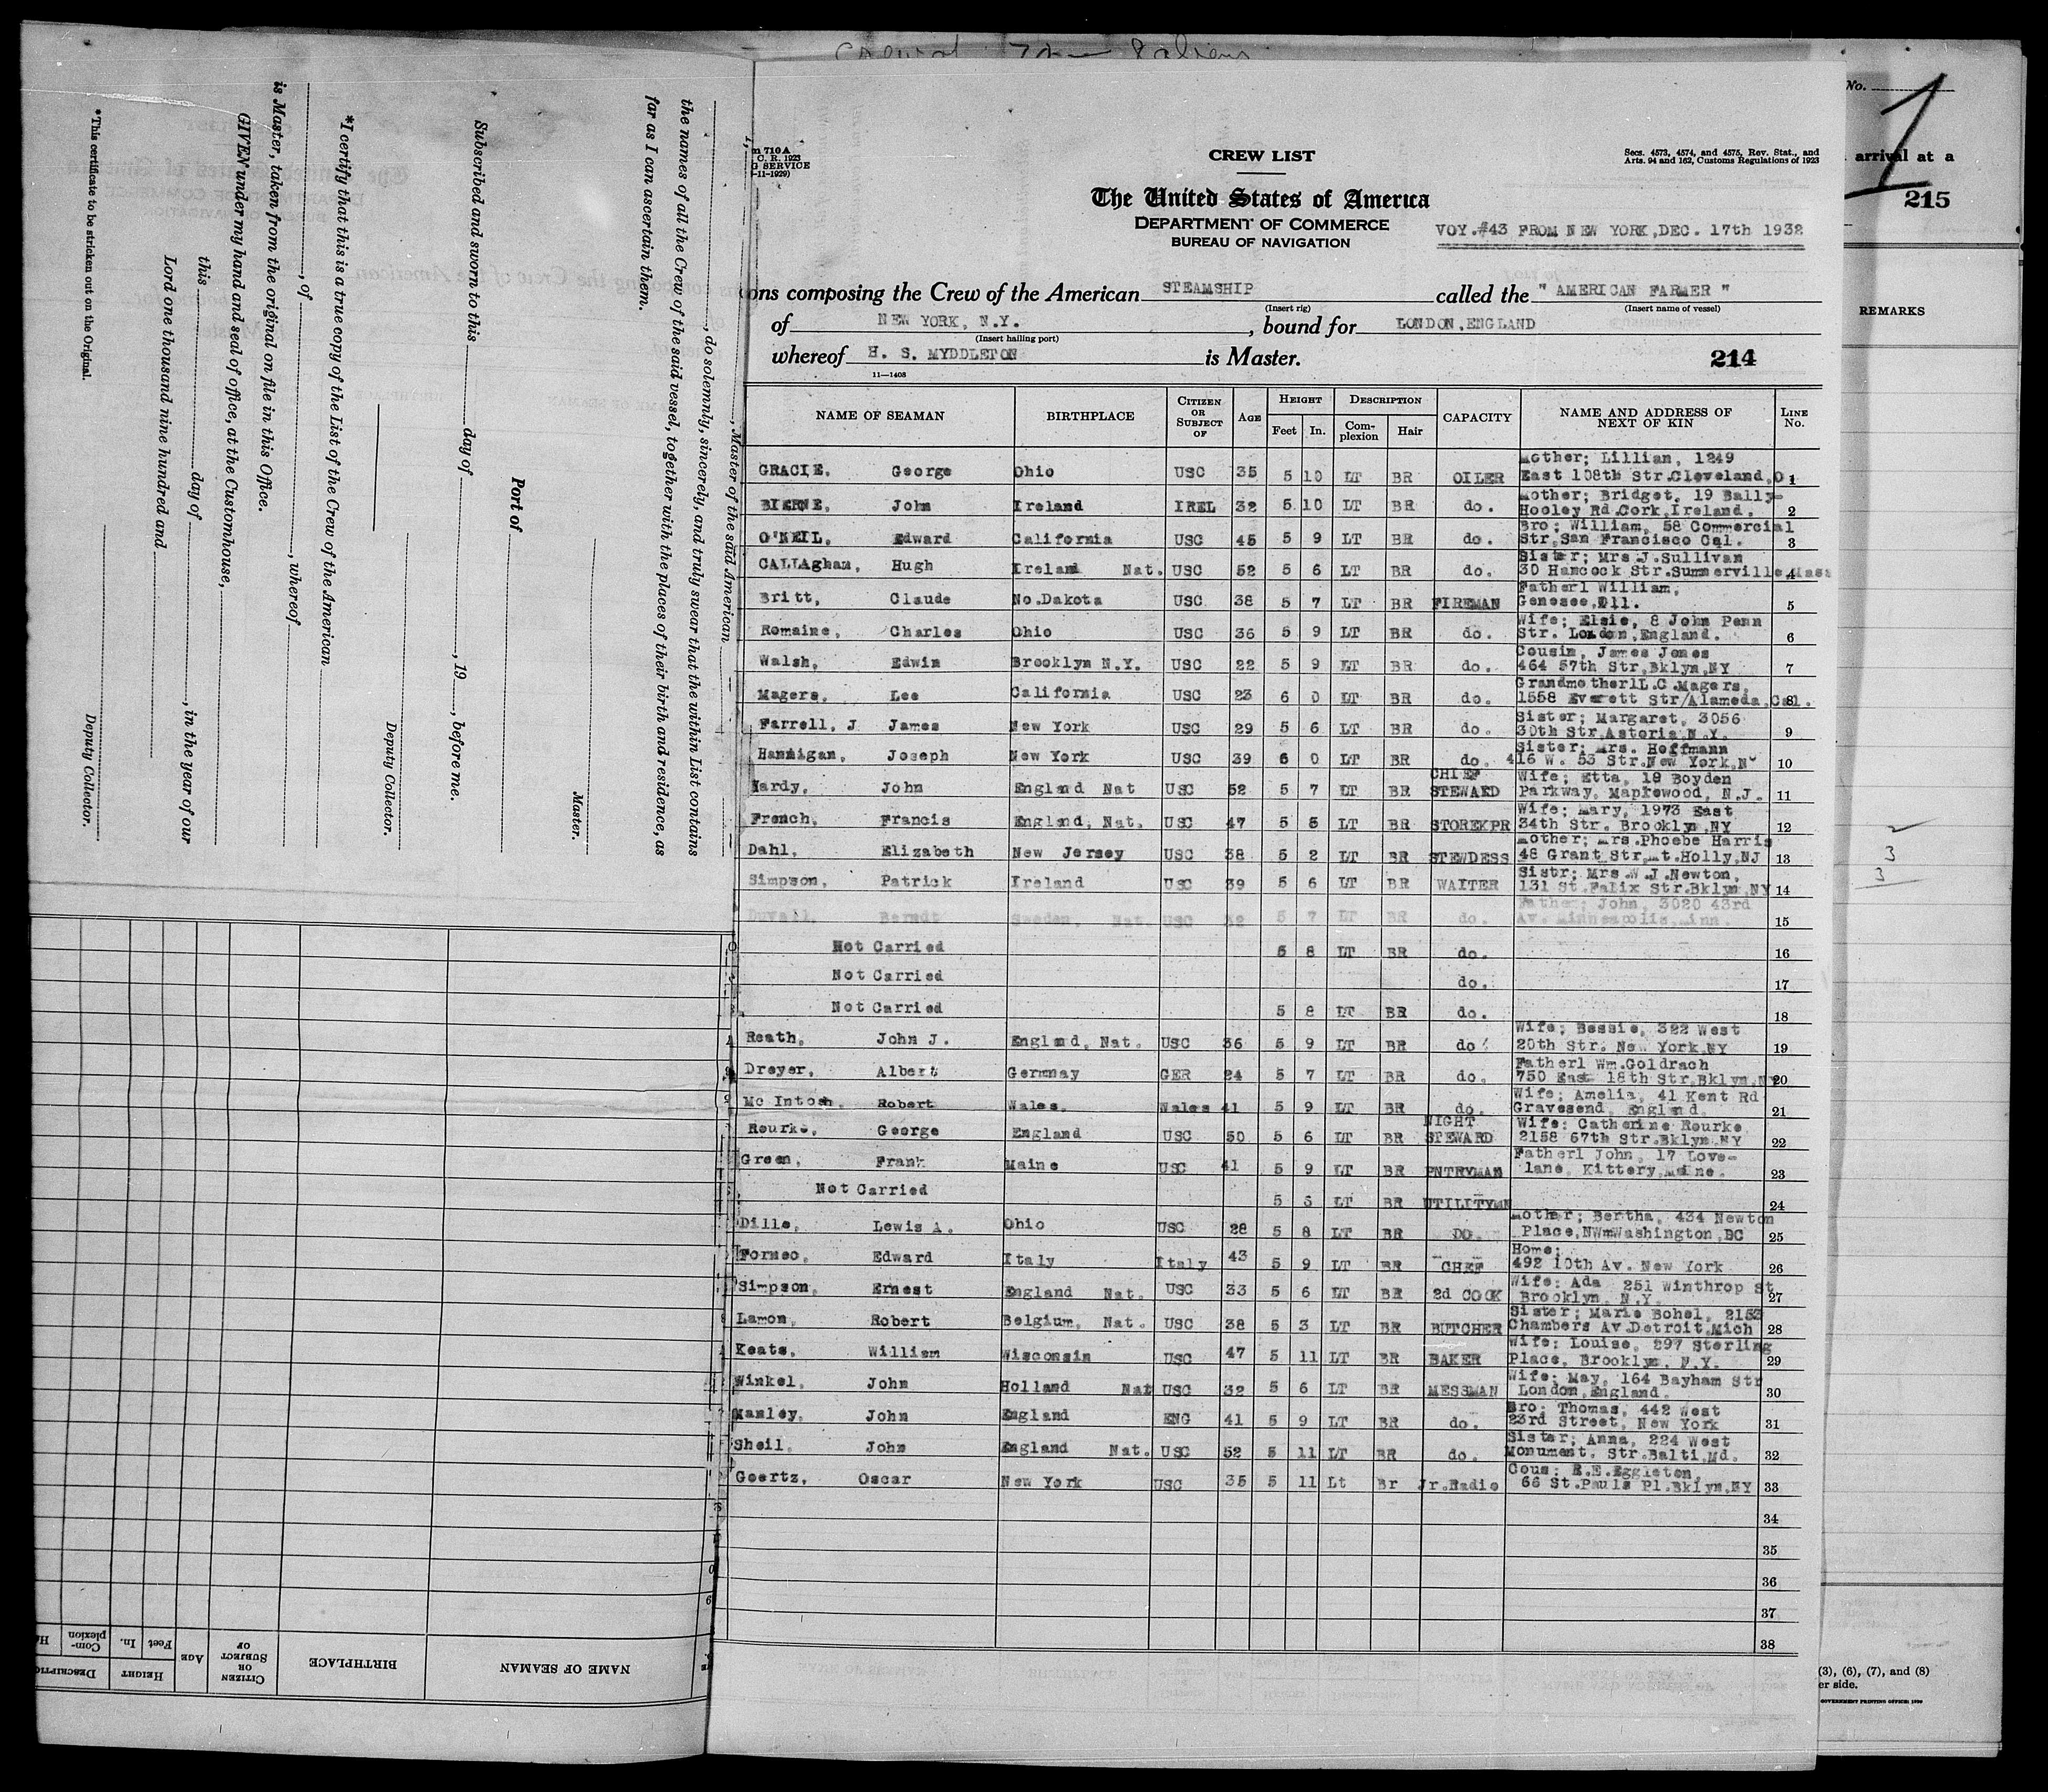 Master of the said American
, do solemnly, sincerely, and truly swear that the within List contains
the names of all the Crew of the said vessel, together with the places of their birth and residence, as
far as I can ascertain them.
Master.
Port of
Subscribed and sworn to this day of , 19 , before me.
Deputy Collector.
*I certify that this is a true copy of the List of the Crew of the American
, of , whereof
is Master, taken from the original on file in this Office.
GIVEN under my hand and seal of office, at the Customhouse,
this day of , in the year of our
Lord one thousand nine hundred and
Deputy Collector.
*This certificate to be stricken out on the Original.
NAME OF SEAMAN BIRTHPLACE CITIZEN OR SUBJECT OF AGE HEIGHT Feet In. Com-plexion
710 A
C. R. 1923
SERVICE
-11-1929)
CREW LIST
Secs. 4573, 4574, and 4575, Rev. Stat., and
Arts. 94 and 162, Customs Regulations of 1923
The United States of America
DEPARTMENT OF COMMERCE
BUREAU OF NAVIGATION
VOY.#43 FROM NEW YORK,DEC. 17th 1932
ons composing the Crew of the American STEAMSHIP called the " AMERICAN FARMER "
(Insert rig) (Insert name of vessel)
of NEW YORK, N.Y. , bound for LONDON,ENGLAND
(Insert hailing port)
whereof H. S. MYDDLETON is Master. 214
11—1408
NAME OF SEAMAN BIRTHPLACE CITIZEN OR SUBJECT OF AGE HEIGHT DESCRIPTION CAPACITY NAME AND ADDRESS OF NEXT OF KIN LINE No.
Feet In. Com-plexion Hair
GRACIE, George Ohio USC 35 5 10 LT BR OILER Mother; Lillian, 1249
East 108th Str.Cleveland,O 1
BIERNE, John Ireland IREL 32 5 10 LT BR do. Mother; Bridget, 19 Bally-
Hooley Rd.Cork,Ireland. 2
O'NEIL, Edward California USC 45 5 9 LT BR do. Bro; William, 58 Commercial
Str,San Francisco Cal. 3
CALLAgham, Hugh Ireland Nat. USC 52 5 6 LT BR do. Sister; Mrs J.Sullivan
30 Hancock Str.Summerville Mass 4
Britt, Claude No.Dakota USC 38 5 7 LT BR FIREMAN Fatherl William,
Genesee,Ill. 5
Romaine, Charles Ohio USC 36 5 9 LT BR do. Wife; Elsie, 8 John Penn
Str. London,England. 6
Walsh, Edwin Brooklyn N.Y. USC 22 5 9 LT BR do. Cousin, James Jones
464 57th Str,Bklyn,NY 7
Magers, Lee California USC 23 6 0 LT BR do. GrandmotherlL.C.Magers,
1558 Everett Str/Alameda,Cal. 8
Farrell, J James New York USC 29 5 6 LT BR do. Sister; Margaret, 3056
30th Str,Astoria,N.Y. 9
Hannigan, Joseph New York USC 39 6 0 LT BR do. Sister; Mrs. Hoffmann
416 W. 53 Str.New York,N 10
Hardy, John England Nat USC 52 5 7 LT BR CHIEF STEWARD Wife; Etta, 19 Boyden
Parkway, Maplewood, N.J. 11
French, Francis England, Nat. USC 47 5 5 LT BR STOREKPR Wife; Mary, 1973 East
34th Str. Brooklyn,NY 12
Dahl, Elizabeth New Jersey USC 38 5 2 LT BR STEWDESS Mother; Mrs.Phoebe Harris
48 Grant Str,Mt.Holly,NJ 13
Simpson, Patrick Ireland USC 39 5 6 LT BR WAITER Sistr; Mrs.W.J.Newton,
131 St.Falix Str.Bklyn,NY 14
Duvall, Berndt Sweden, Nat. USC 42 5 7 LT BR do. Father; John, 3020 43rd
Av. Minneapolis,Minn. 15
Not Carried 5 8 LT BR do. 16
Not Carried do. 17
Not Carried 5 8 LT BR do. 18
Reath, John J. England, Nat. USC 36 5 9 LT BR do. Wife; Bessie, 322 West
20th Str. New York,NY 19
Dreyer, Albert Germnay GER 24 5 7 LT BR do. Fatherl Wm.Goldrach
750 East 18th Str,Bklyn,NY 20
Mc Intosh, Robert Wales, Wales 41 5 9 LT BR do. Wife; Amelia, 41 Kent Rd
Gravesend, England. 21
Rourke, George England USC 50 5 6 LT BR NIGHT STEWARD Wife; Catherine Rourke,
2158 67th Str.Bklyn,NY 22
Green, Frank Maine USC 41 5 9 LT BR PNTRYMAN Fatherl John, 17 Love-
lane, Kittery,Maine. 23
Not Carried 5 6 LT BR UTILITYMN 24
Dille, Lewis A. Ohio USC 28 5 8 LT BR DO. Mother; Bertha, 434 Newton
Place,NWmWashington,DC 25
Forneo, Edward Italy Italy 43 5 9 LT BR CHEF Home;
492 10th Av. New York 26
Simpson, Ernest England Nat. USC 33 5 6 LT BR 2d COOK Wife; Ada 251 Winthrop St
Brooklyn, N.Y. 27
Lamon, Robert Belgium, Nat. USC 38 5 3 LT BR BUTCHER Sister; Marie Bohel, 2153
Chambers Av.Detroit,Mich 28
Keats, William Wisconsin USC 47 5 11 LT BR BAKER Wife; Louise, 297 Sterling
Place, Brooklyn, N.Y. 29
Winkel, John Holland Nat USC 32 5 6 LT BR MESSMAN Wife; May, 164 Bayham Str
London,England. 30
Manley, John England ENG 41 5 9 LT BR do. Bro; Thomas, 442 West
23rd Street, New York 31
Sheil, John England Nat. USC 52 5 11 LT BR do. Sister; Anna, 224 West
Monument. Str.Balti,Md. 32
Goertz, Oscar New York USC 35 5 11 Lt Br Jr.Radio Cous; E.E.Eggleton,
66 St.Pauls Pl.Bklyn,NY 33
34
35
36
37
38
No.
1
arrival at a
215
REMARKS
3
3
(3), (6), (7), and (8)
er side.
GOVERNMENT PRINTING OFFICE